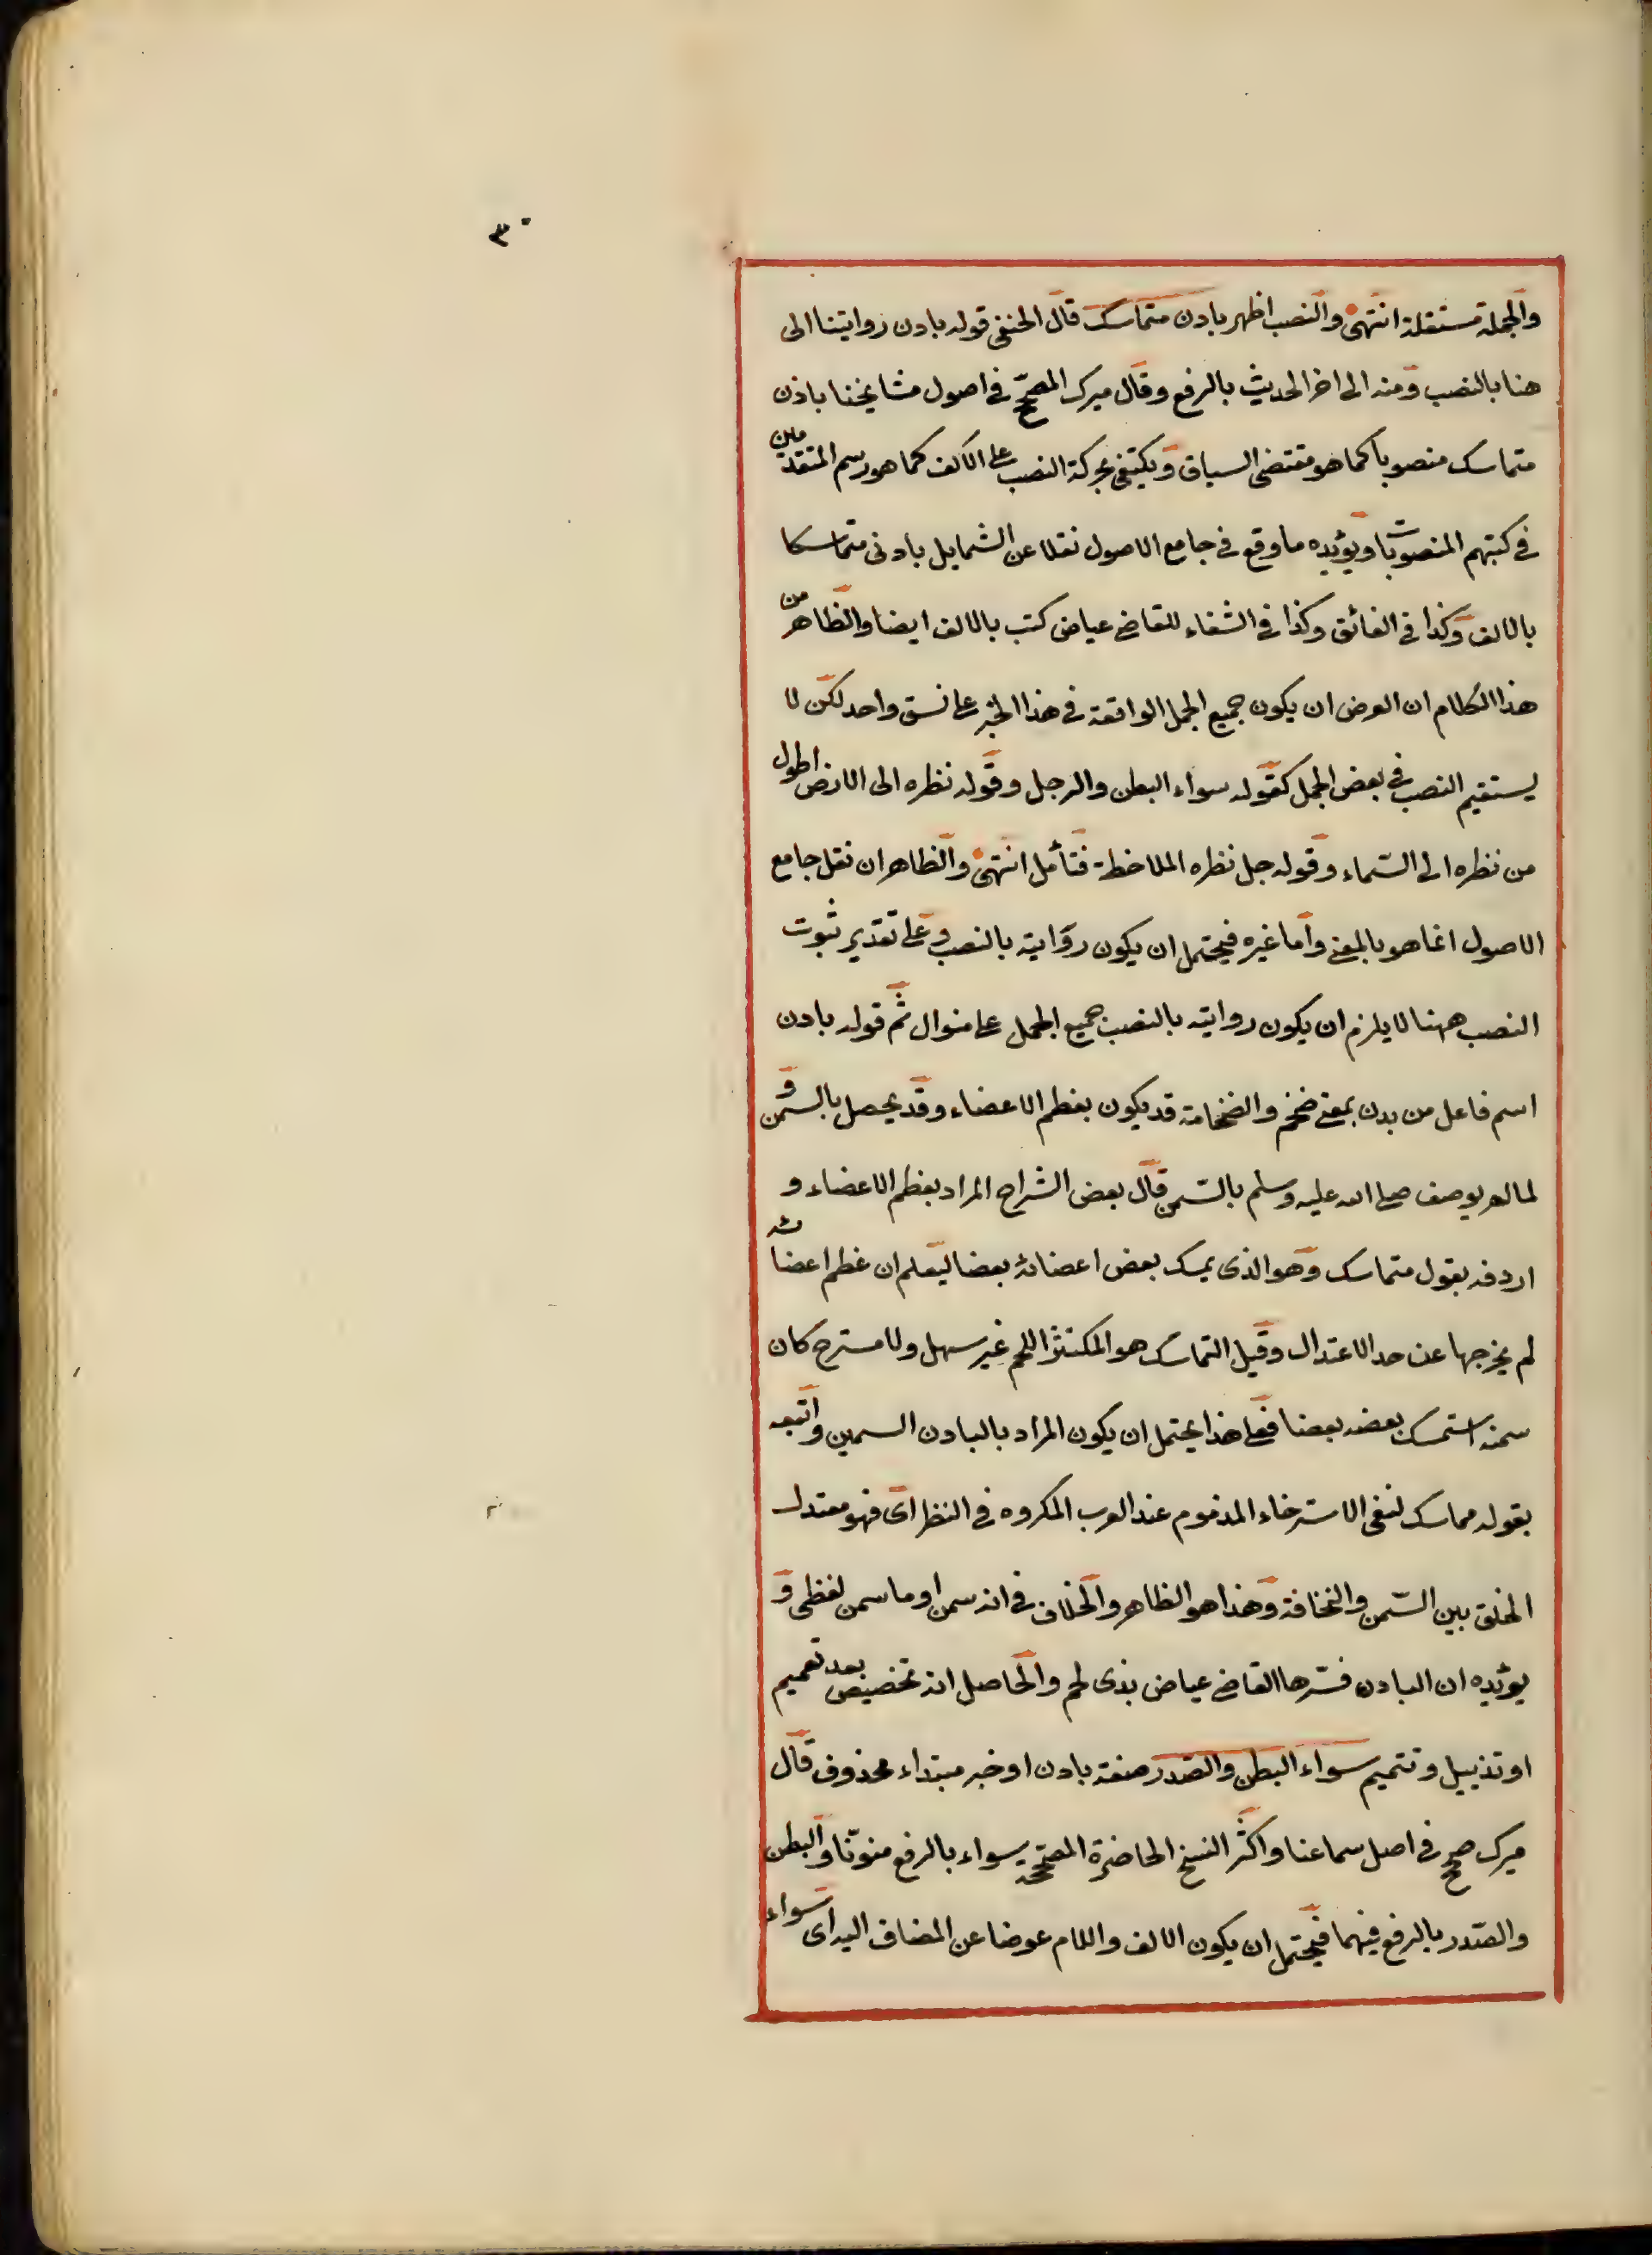 ٣٠
والجملة مستقلة انتهى والنصب اظهر بادن متماسك قال الحنفى قوله بادن روايتنا الى
هنا بالنصب ومنه الى اخر الحديث بالرفع وقال ميرك المصحح فى اصول مشايخنا باذن
متماسك منصوبا كما هو مقتضى السياق ويكتفى بحركة النصب على الالف كما هو رسم المتقدمين
فى كتبهم المنصوبات ويؤيده ما وقع فى جامع الاصول نقلا عن الشمايل بادنى متماسكا
بالالف وكذا فى الفائق وكذا فى الشفاء للقاضى عياض كتب بالالف ايضا والظاهر من
هذا الكلام ان العرض ان يكون جميع الجمل الواقعة فى هذا الخبر على نسق واحد لكن لا
يستقيم النصب فى بعض الجمل كقوله سواء البطن والرجل وقوله نظره الى الارض اطول
من نظره الى السّماء وقوله جل نظره الملاخظة فتأمل انتهى والظاهر ان نقل جامع
الاصول انما هو بالمعنى وأما غيره فيحتمل ان يكون روايته بالنصب وعلى تقدير ثبوت
النصب ههنا لا يلزم ان يكون روايته بالنصب جميع الجمل على منوال ثم قوله بادن
اسم فاعل من بدن بمعنى ضخم والضخامة قد يكون بعظم الاعضاء وقد يحصل بالسمن و
لما لم يوصف صلى الله عليه وسلم بالسّمن قال بعض الشراح المراد بعظم الاعضاء و
اردفه بقول متماسك وهو الذى يمسك بعض اعضائه بعضا ليعلم ان عظم اعضائه
لم يخرجها عن حد الاعتدال وقيل التماسك هو المكتنز اللحم غير سهل ولا مسترح كان
سمنه استمسك بعضه بعضا فعلى هذا يحتمل ان يكون المراد بالبادن السمين واتبعه
بقوله مماسك لنفى الاسترخاء المذموم عند العرب المكروه فى النظر اى فهو معتدل
الخلق بين السّمن والنخافة وهذا هو الظاهر والخلاف فى انه سمن او ما سمن لفظى و
يؤيده ان البادن فسّرها القاضى عياض بذى لحم والحاصل انه تخصيص بعد تعميم
او تذييل وتتميم سواء البطن والصّدر صفة بادن او خبر مبتداء محذوف قال
ميرك صحح فى اصل سماعنا واكثر النسخ الحاضرة المصححة سواء بالرفع منوّنا والبطن
والصّدر بالرفع فيهما فيحتمل ان يكون الالف واللام عوضا عن المضاف اليه اى سواء